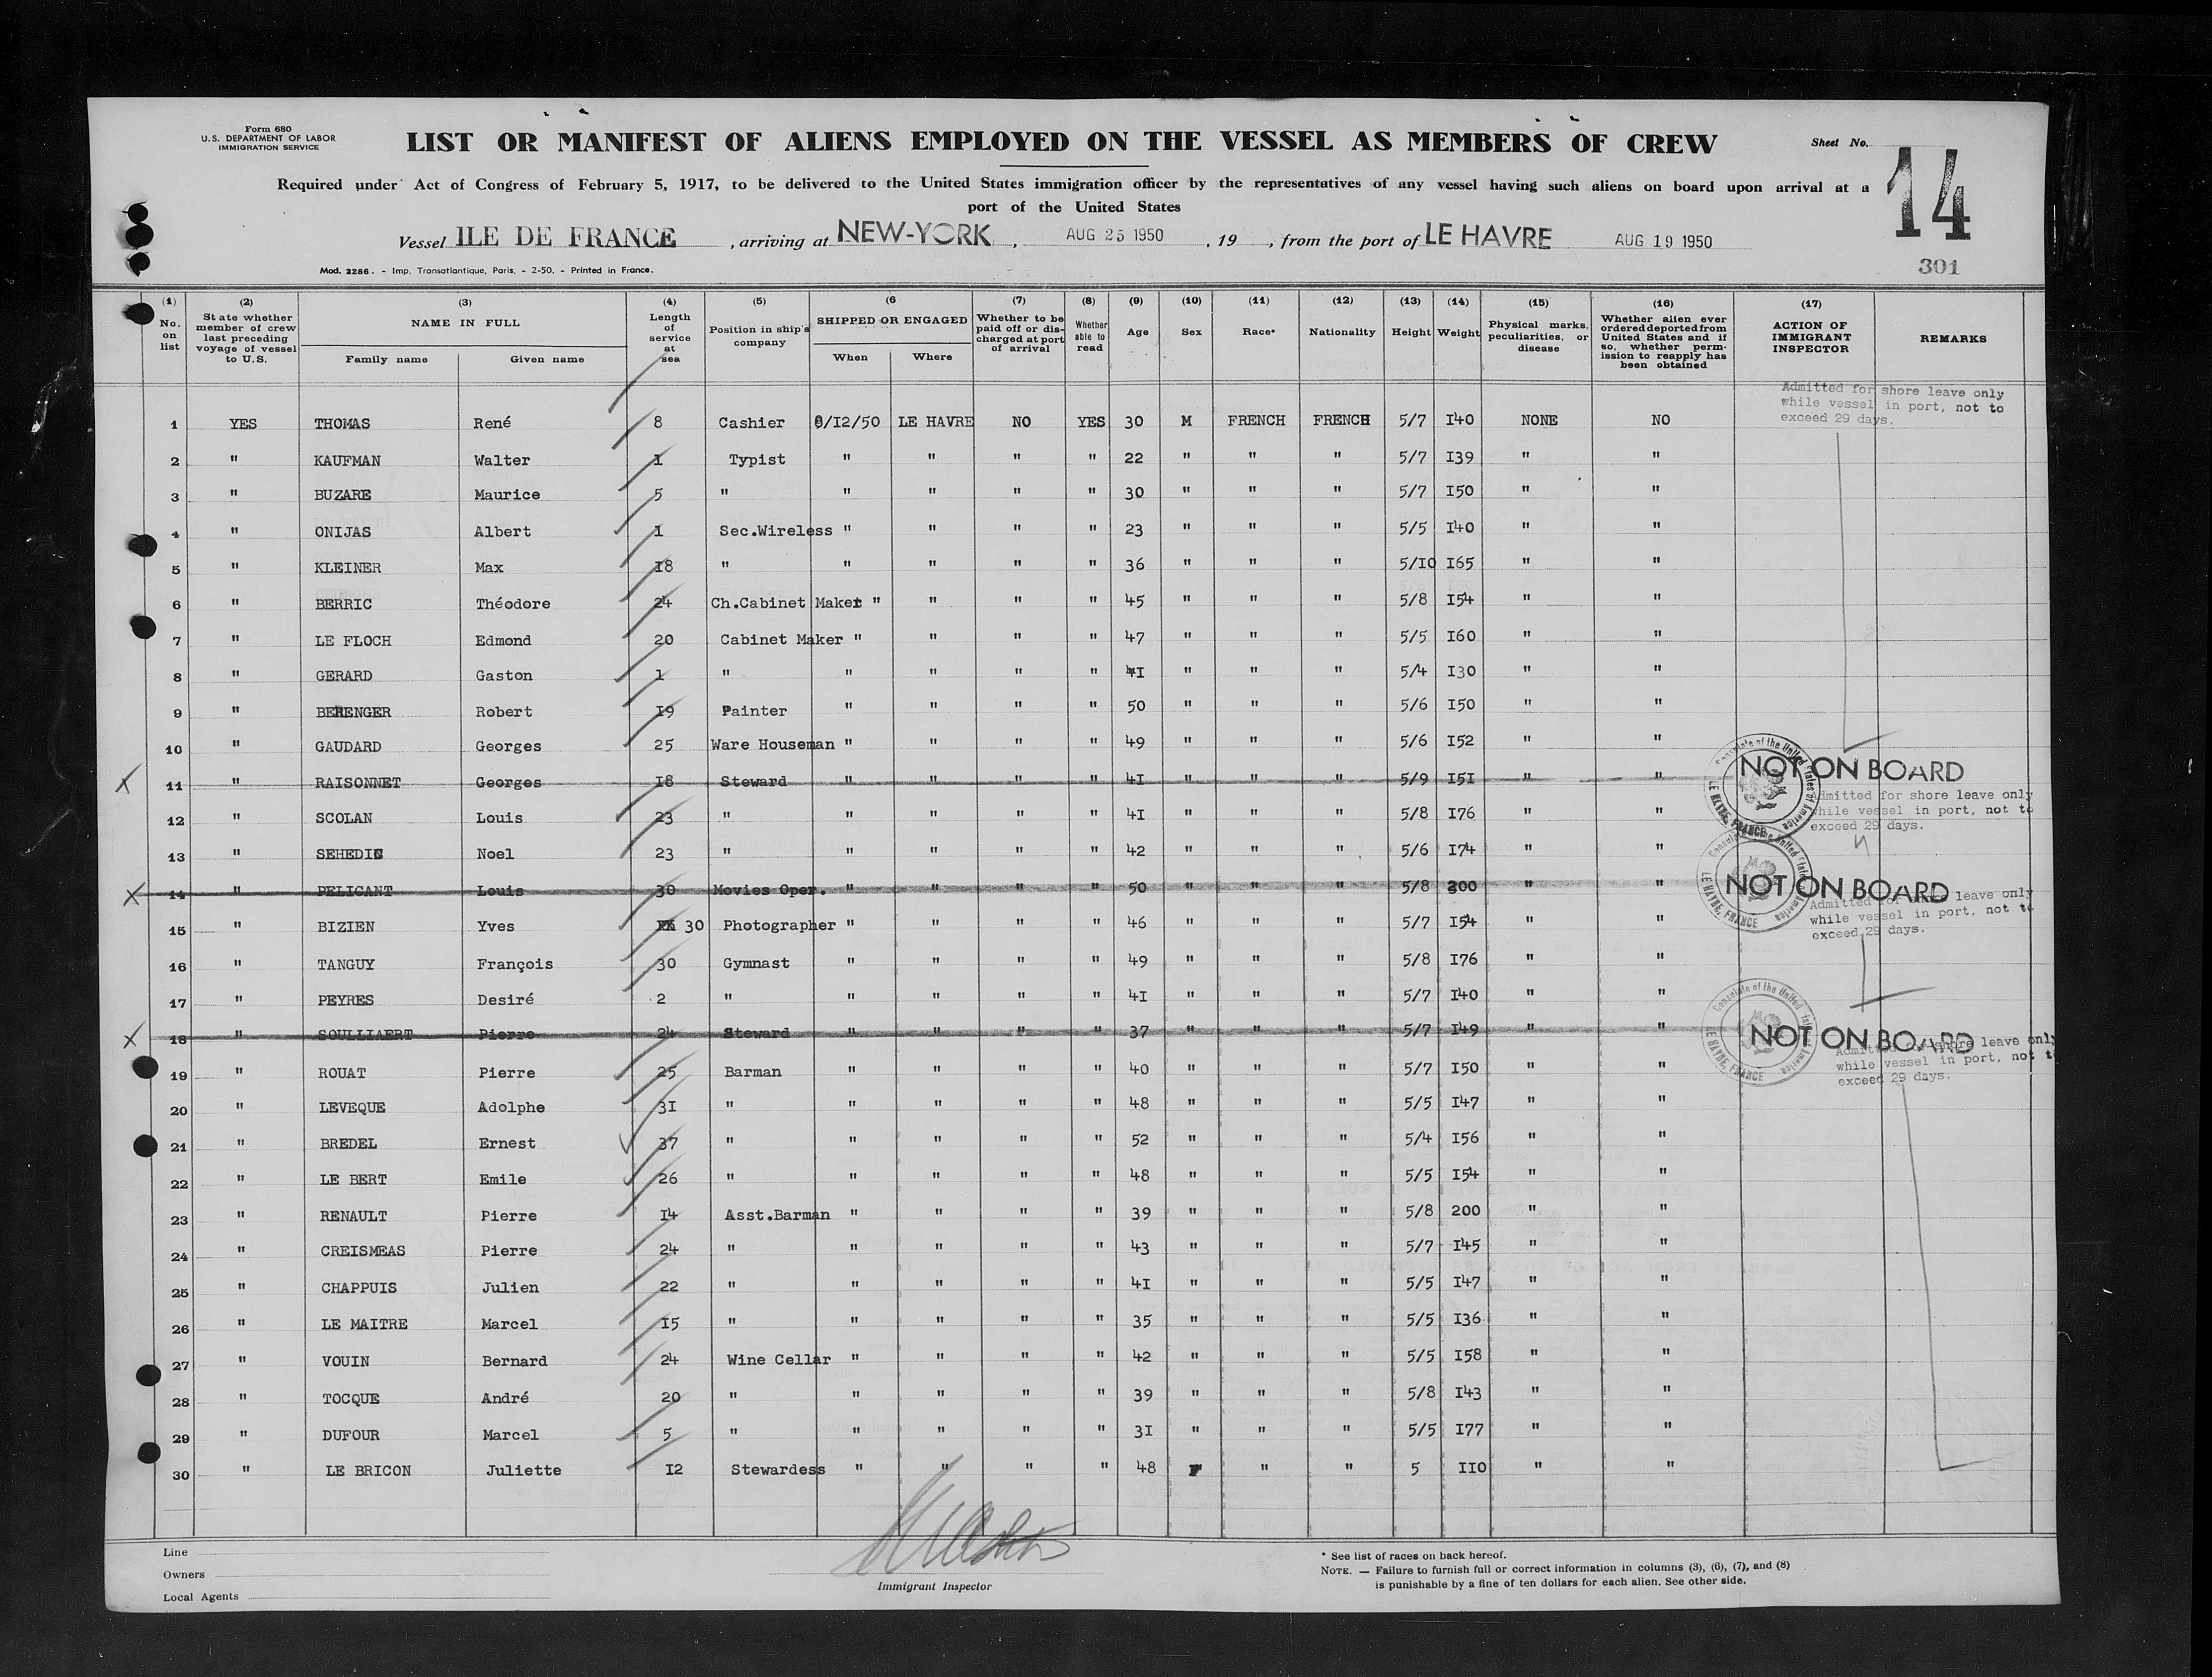 Form 680
U.S. DEPARTMENT OF LABOR
IMMIGRATION SERVICE
LIST OR MANIFEST OF ALIENS EMPLOYED ON THE VESSEL AS MEMBERS OF CREW
Sheet No.
14
Required under Act of Congress of February 5, 1917, to be delivered to the United States immigration officer by the representatives of any vessel having such aliens on board upon arrival at a
port of the United States
Vessel ILE DE FRANCE , arriving at NEW-YORK , AUG 25 1950 , 19 , from the port of LE HAVRE AUG 19 1950
301
Mod. 2286. - Imp. Transatlantique, Paris. - 2-50. - Printed in France.
(1) No. on list
(2) State whether member of crew last preceding voyage of vessel to U.S.
(3) NAME IN FULL Family name Given name
(4) Length of service at sea
(5) Position in ship's company
(6 SHIPPED OR ENGAGED When Where
(7) Whether to be paid off or discharged at port of arrival
(8) Whether able to read
(9) Age
(10) Sex
(11) Race*
(12) Nationality
(13) Height
(14) Weight
(15) Physical marks, peculiarities, or disease
(16) Whether alien ever ordered deported from United States and if so, whether permission to reapply has been obtained
(17) ACTION OF IMMIGRANT INSPECTOR
REMARKS
Admitted for shore leave only
while vessel in port, not to
exceed 29 days.
1 YES THOMAS René 8 Cashier 8/12/50 LE HAVRE NO YES 30 M FRENCH FRENCH 5/7 I40 NONE NO
2 " KAUFMAN Walter I Typist " " " " 22 " " " 5/7 I39 " "
3 " BUZARE Maurice 5 " " " " " 30 " " " 5/7 I50 " "
4 " ONIJAS Albert 1 Sec.Wireless " " " " 23 " " " 5/5 I40 " "
5 " KLEINER Max I8 " " " " " 36 " " " 5/I0 I65 " "
6 " BERRIC Théodore 24 Ch.Cabinet Maker " " " " 45 " " " 5/8 I54 " "
7 " LE FLOCH Edmond 20 Cabinet Maker " " " " 47 " " " 5/5 I60 " "
8 " GERARD Gaston 1 " " " " " 4I " " " 5/4 I30 " "
9 " BERENGER Robert I9 Painter " " " " 50 " " " 5/6 I50 " "
10 " GAUDARD Georges 25 Ware Houseman " " " " 49 " " " 5/6 I52 " "
11 " RAISONNET Georges I8 Steward " " " " 4I " " " 5/9 I5I " " NOT ON BOARD
Admitted for shore leave only
while vessel in port, not to
exceed 29 days.
12 " SCOLAN Louis 23 " " " " " 4I " " " 5/8 I76 " "
13 " SEHEDIC Noel 23 " " " " " 42 " " " 5/6 I74 " "
14 " PELICANT Louis 30 Movies Oper. " " " " 50 " " " 5/8 200 " " NOT ON BOARD
Admitted for shore leave only
while vessel in port, not to
exceed 29 days.
15 " BIZIEN Yves 30 Photographer " " " " 46 " " " 5/7 I54 " "
16 " TANGUY François 30 Gymnast " " " " 49 " " " 5/8 I76 " "
17 " PEYRES Desiré 2 " " " " " 4I " " " 5/7 I40 " "
18 " SOULLIAERT Pierre 24 Steward " " " " 37 " " " 5/7 I49 " " NOT ON BOARD
Admitted for shore leave only
while vessel in port, not to
exceed 29 days.
19 " ROUAT Pierre 25 Barman " " " " 40 " " " 5/7 I50 " "
20 " LEVEQUE Adolphe 3I " " " " " 48 " " " 5/5 I47 " "
21 " BREDEL Ernest 37 " " " " " 52 " " " 5/4 I56 " "
22 " LE BERT Emile 26 " " " " " 48 " " " 5/5 I54 " "
23 " RENAULT Pierre I4 Asst.Barman " " " " 39 " " " 5/8 200 " "
24 " CREISMEAS Pierre 24 " " " " " 43 " " " 5/7 I45 " "
25 " CHAPPUIS Julien 22 " " " " " 4I " " " 5/5 I47 " "
26 " LE MAITRE Marcel I5 " " " " " 35 " " " 5/5 I36 " "
27 " VOUIN Bernard 24 Wine Cellar " " " " 42 " " " 5/5 I58 " "
28 " TOCQUE André 20 " " " " " 39 " " " 5/8 I43 " "
29 " DUFOUR Marcel 5 " " " " " 3I " " " 5/5 I77 " "
30 " LE BRICON Juliette I2 Stewardess " " " " 48 F " " 5 II0 " "
Consulate of the United States of America LE HAVRE, FRANCE
Consulate of the United States of America LE HAVRE, FRANCE
Consulate of the United States of America LE HAVRE, FRANCE
Line
Owners
Local Agents
Immigrant Inspector
* See list of races on back hereof.
NOTE. — Failure to furnish full or correct information in columns (3), (6), (7), and (8)
is punishable by a fine of ten dollars for each alien. See other side.